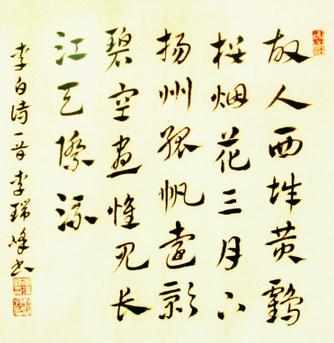 故人西辞黄鶴
楼烟花三月下
扬州孤帆遠影
碧空盡惟见长
江天際流
李白诗一首 李瑞峰书